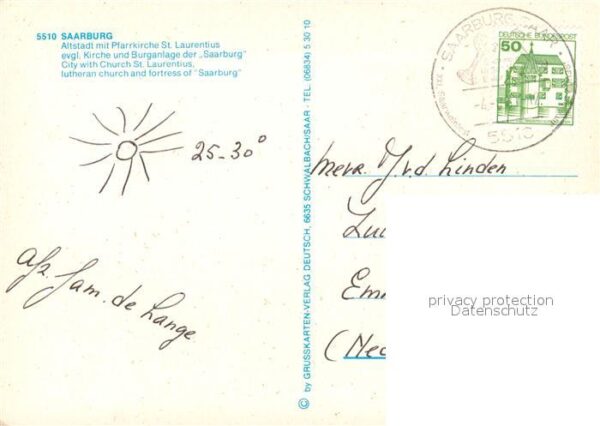 5510 SAARBURG
Altstadt mit Pfarrkirche St. Laurentius
evgl. Kirche und Burganlage der „Saarburg"
City with Church St. Laurentius,
lutheran church and fortress of "Saarburg"
25-30°
afz. fam. de Lange
© by GRUSSKARTEN-VERLAG DEUTSCH, 6635 SCHWALBACH/SAAR - TEL. (06834) 5 30 10
SAARBURG
5510
DEUTSCHE BUNDESPOST
50
mevr. v.d. Linden
Emm
(Ned
privacy protection
Datenschutz